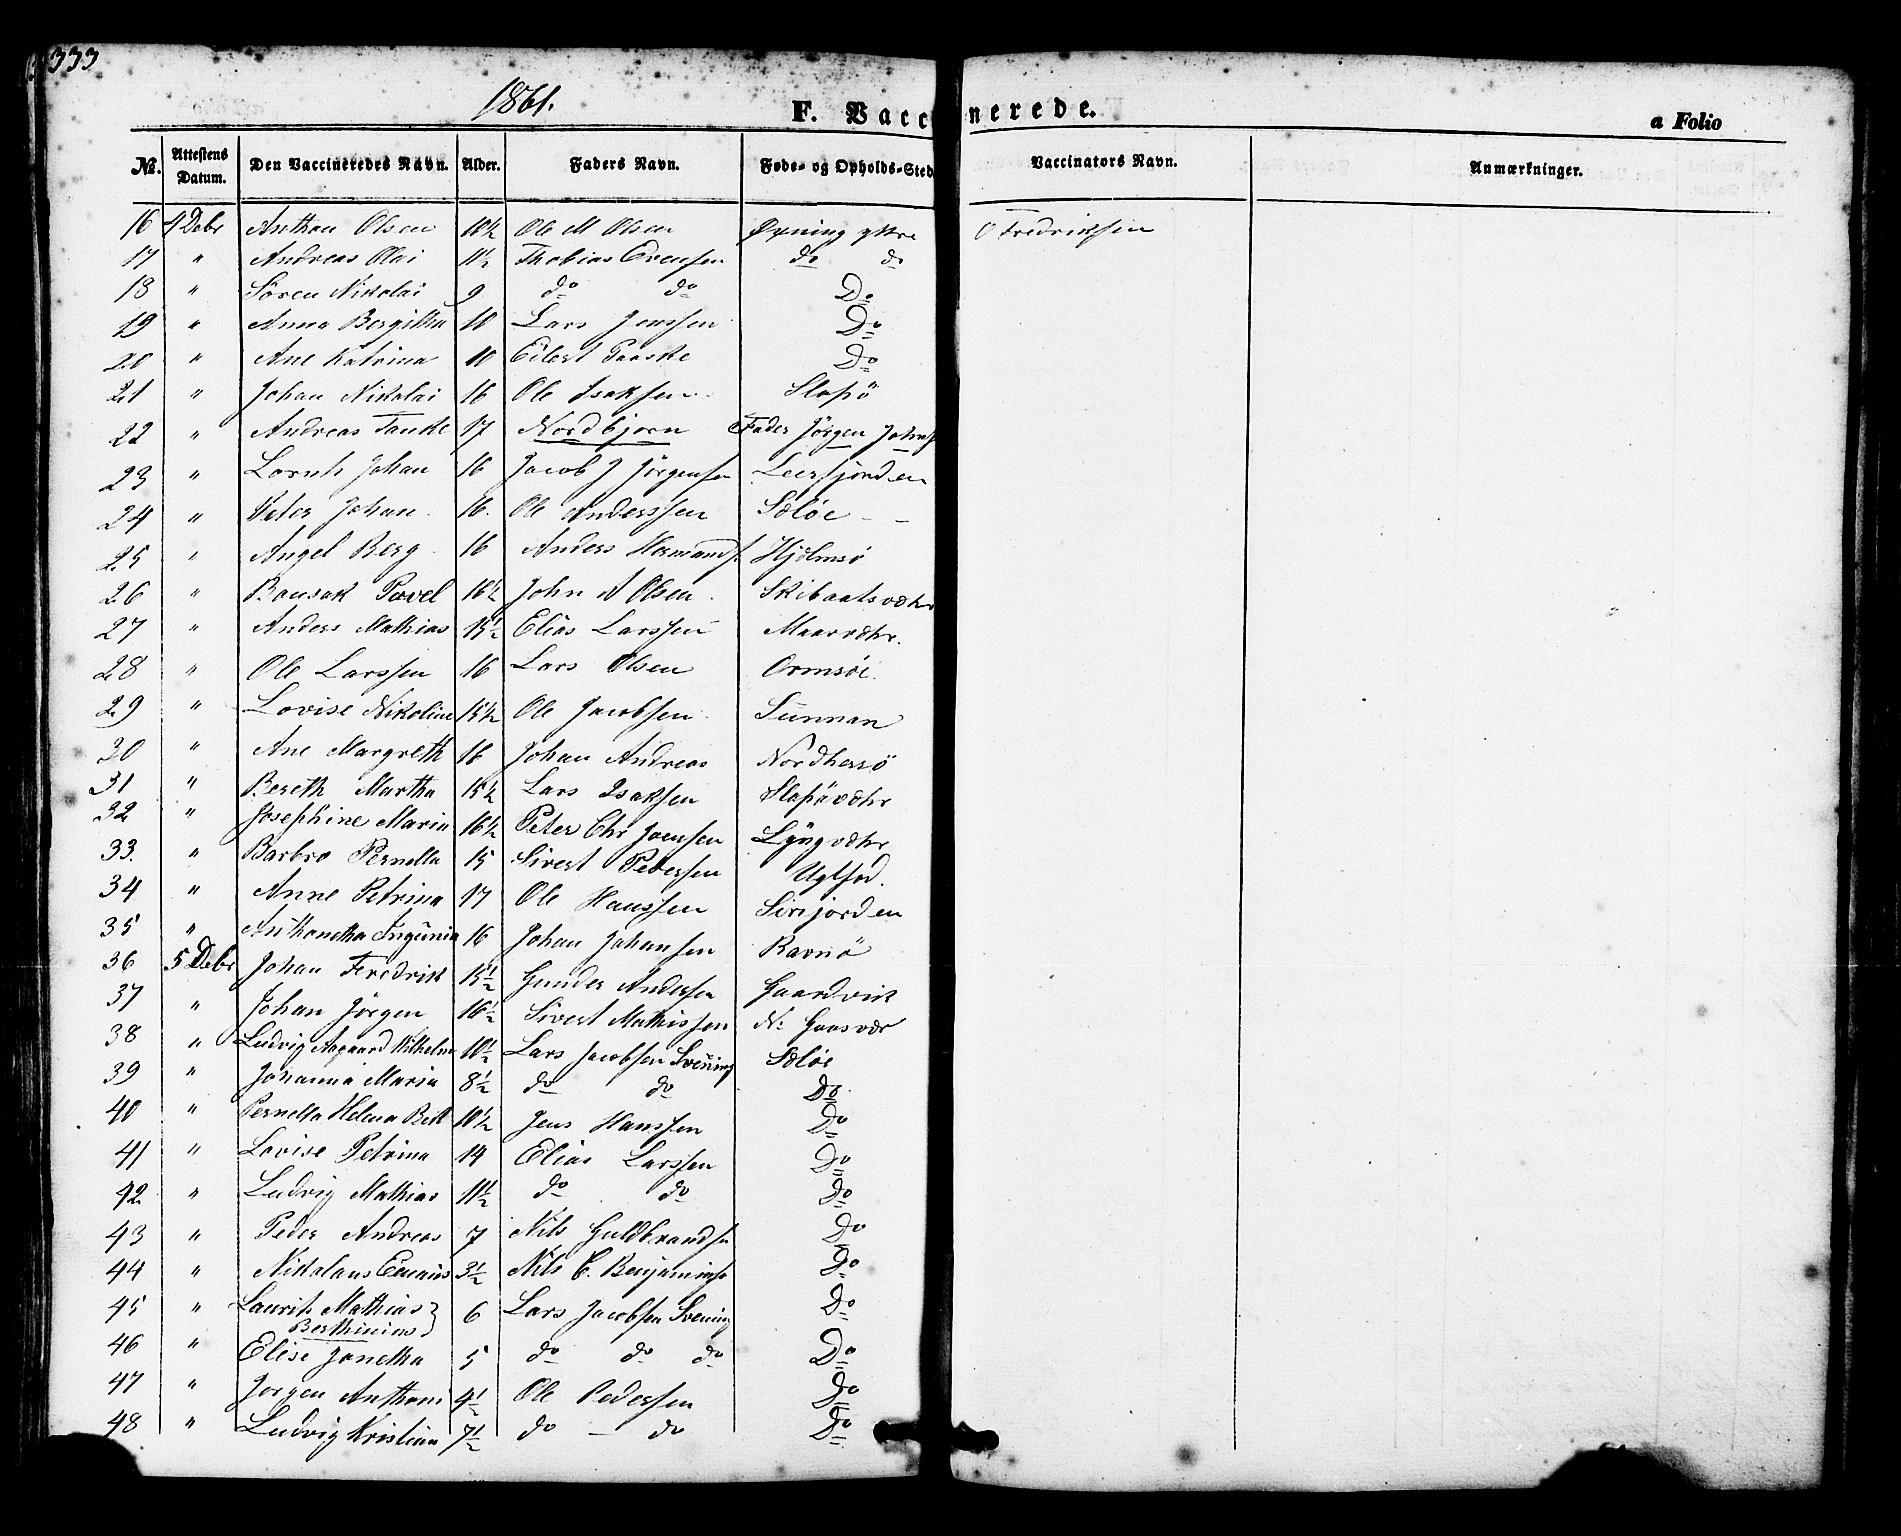 333
1861.
F. Vaccinerede.
a Folio
No. Attestens Datum. Den Vaccineredes Navn. Alder. Faders Navn. Føde- og Opholds-Sted Vaccinators Navn. Anmærkninger.
16 4 Debr Anthon Olsen 10½ Ole M Olsen Øxning yttre O Fredriksen
17 " Andreas Olai 11½ Thobias Evensen do do
18 " Sören Nikolai 9 do do Do
19 " Anna Bergitha 10 Lars Jenssen Do
20 " Ane Katrina 10 Eilert Paaske Do
21 " Johan Nikolai 16 Ole Isaksen Slapö
22 " Andreas Tanke 17 Nordbjorn Fader Jörgen Johns
23 " Lornts Johan 16 Jacob J Jörgensen Leerfjorden
24 " Peter Johan 16. Ole Anderssen Sæløe - -
25 " Angel Berg 16 Anders Hermands. Hjelmsö
26 " Bonsak Povel 16½ John A Olsen Skibaatsvæhr
27 " Anders Mathias 15½ Elias Larssen Maarvæhr.
28 " Ole Larssen 16 Lars Olsen Ormsöe.
29 " Lovise Nikoline 15½ Ole Jacobsen Sunnan
30 " Ane Margreth 16 Johan Andreas Nordhersö
31 " Bereth Martha 15½ Lars Isaksen Slapövæhr
32 " Josephine Maria 16½ Peter Chr Jenssen Lyngvæhr
33. " Barbro Pernella 15 Sivert Pederssen
34 " Anne Petrina 17 Ole Hanssen Sirijorden
35 " Anthonetha Ingunia 16 Johan Johansen Ravnö
36 5 Debr Johan Fredrik 15½ Gunder Andersen Gaardvik
37 " Johan Jörgen 16½ Sivert Mathissen N: Gaasvær
38 " Ludvig Aagaard Wilhelm 10½ Lars Jacobsen Svenning Sæløe
39 " Johanna Maria 8½ do do Do
40 " Pernella Helena Beth 10½ Jens Hanssen Do
41 " Lovise Petrina 14 Elias Larssen Do
42 " Ludvig Mathias 11½ do do Do
43 " Peder Andreas 7 Nils Guldbrandsn Do
44 " Nikolaus Emaus 3½ Nils C. Benjamins Do
45 " Laurits Mathias } 6 Lars Jacobsen Svening Do
Berthinius
46 " Elise Janetha 5 do do do Do
47 " Jorgen Anthoni 9½ Ole Pedersen Do
48 " Ludvig Kristian 7½ do - do Do